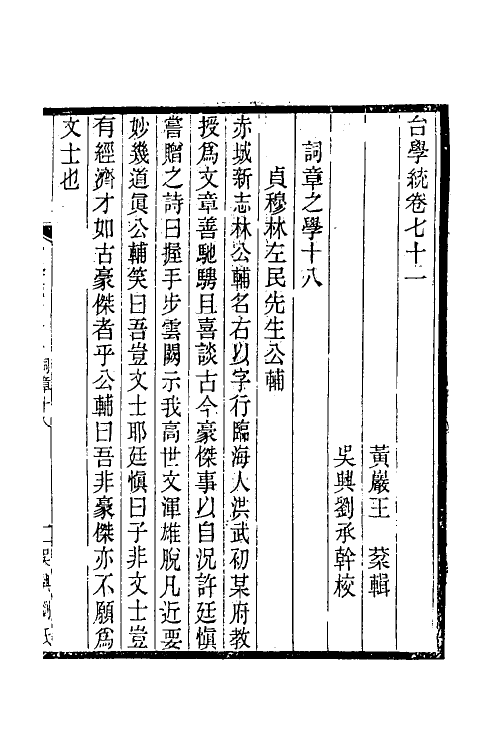 台學統卷七十二
黃巖王 棻輯
吳興劉承幹校
詞章之學十八
貞穆林左民先生公輔
赤城新志林公輔名右以字行臨海人洪武初某府教
授爲文章善馳騁且喜談古今豪傑事以自況許廷愼
嘗贈之詩曰握手步雲闕示我高世文渾雄脫凡近要
妙幾道眞公輔笑曰吾豈文士耶廷愼曰子非文士豈
有經濟才如古豪傑者乎公輔曰吾非豪傑亦不願爲
文士也